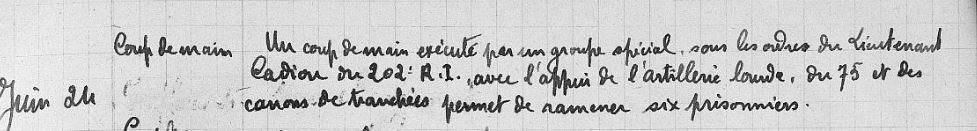 Coup de main Un coup de main exécuté par un groupe spécial, sous les ordres du Lieutenant
Cadiou du 202e R.I., avec l'appui de l'artillerie lourde, du 75 et des
Juin 24 canons de tranchées permet de ramener six prisonniers.